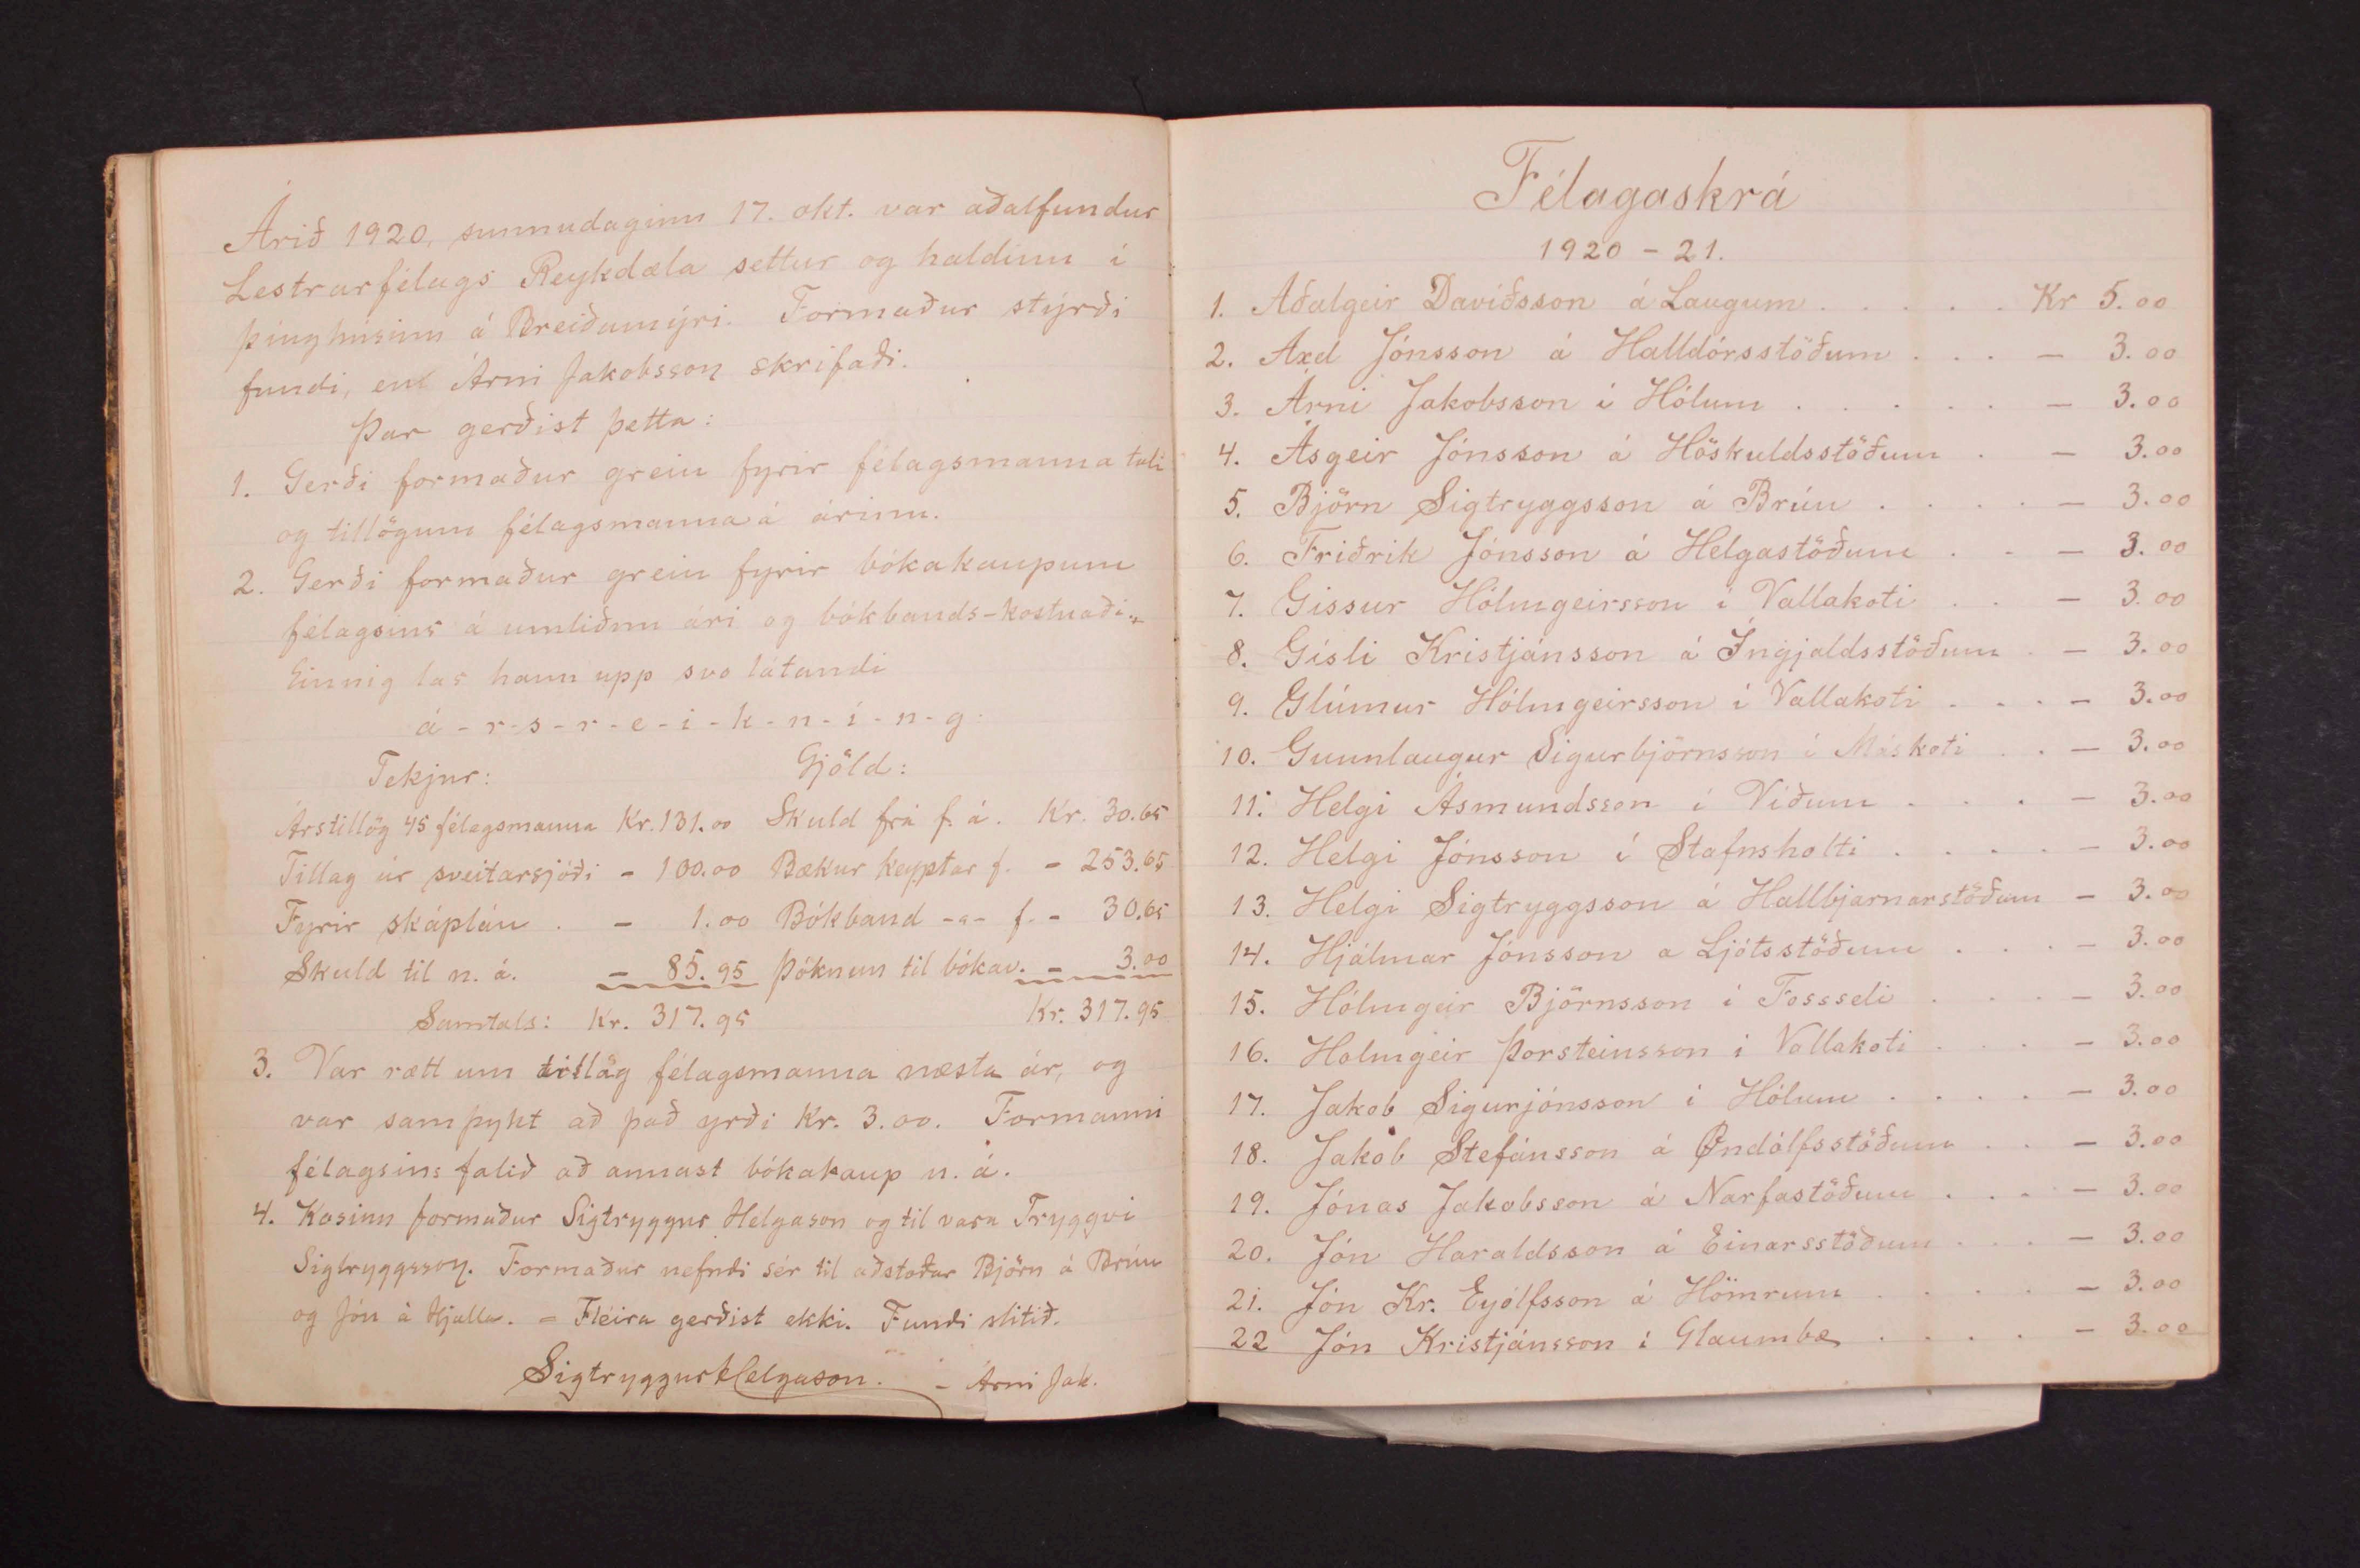 Árið 1920, sunnudaginn 17. okt. var aðalfundur
Lestrarfélags Reykdæla settur og haldinn í
þinghúsinu á Breiðumýri. Formaður stýrði
fundi, en Árni Jakobsson skrifaði.
Þar gerðist þetta:
1. Gerði formaður grein fyrir félagsmanna tali
og tillögum félagsmanna á árinu.
2. Gerði formaður grein fyrir bókakaupum
félagsins á umliðnu ári og bókbands-kostnaði.
Einnig las hann upp svo látandi
á-r-s-r-e-i-k-n-í-n-g:
Tekjur: Gjöld:
Árstillög 45 félagsmanna Kr. 131.00 Skuld frá f. á. Kr. 30.65
Tillag úr sveitarsjóði - 100.00 Bækur keyptar f. - 253.65
Fyrir skáplán . - 1.00 Bókband -"- f. - 30.65
Skuld til n. á. - 85.95 Þóknun til bókav. - 3.00
Samtals: Kr. 317.95 Kr. 317.95
3. Var rætt um tillög félagsmanna næsta ár, og
var samþykt að það yrði Kr. 3.00. Formanni
félagsins falið að annast bókakaup n. á.
4. Kosinn formaður Sigtryggur Helgason og til vara Tryggvi
Sigtryggsson. Formaður nefndi sér til aðstoðar Björn á Brún
og Jón á Hjalla. = Fleira gerðist ekki. Fundi slitið.
Sigtryggur Helgason. - Árni Jak.
Félagaskrá
1920 - 21.
1. Aðalgeir Davíðsson á Laugum . . . . . Kr 5.00
2. Axel Jónsson á Halldórsstöðum . . . - 3.00
3. Árni Jakobsson í Hólum . . . . . - 3.00
4. Ásgeir Jónsson á Höskuldsstöðum . - 3.00
5. Björn Sigtryggsson á Brún . . . . - 3.00
6. Friðrik Jónsson á Helgastöðum . . - 3.00
7. Gissur Hólmgeirsson í Vallakoti . . - 3.00
8. Gísli Kristjánsson á Ingjaldsstöðum . - 3.00
9. Glúmur Hólmgeirsson í Vallakoti . . . - 3.00
10. Gunnlaugur Sigurbjörnsson í Máskoti . . - 3.00
11. Helgi Ásmundsson í Víðum . . . - 3.00
12. Helgi Jónsson í Stafnsholti . . . . - 3.00
13. Helgi Sigtryggsson á Hallbjarnarstöðum - 3.00
14. Hjálmar Jónsson a Ljótsstöðum . . . - 3.00
15. Hólmgeir Björnsson í Fossseli . . . - 3.00
16. Holmgeir Þorsteinsson í Vallakoti . . . - 3.00
17. Jakob Sigurjónsson í Hólum . . . . - 3.00
18. Jakob Stefánsson á Öndólfsstöðum . . - 3.00
19. Jónas Jakobsson á Narfastöðum . . . - 3.00
20. Jón Haraldsson á Einarsstöðum . . . - 3.00
21. Jón Kr. Eyólfsson á Hömrum . . . . - 3.00
22 Jón Kristjánsson í Glaumbæ . . . . - 3.00